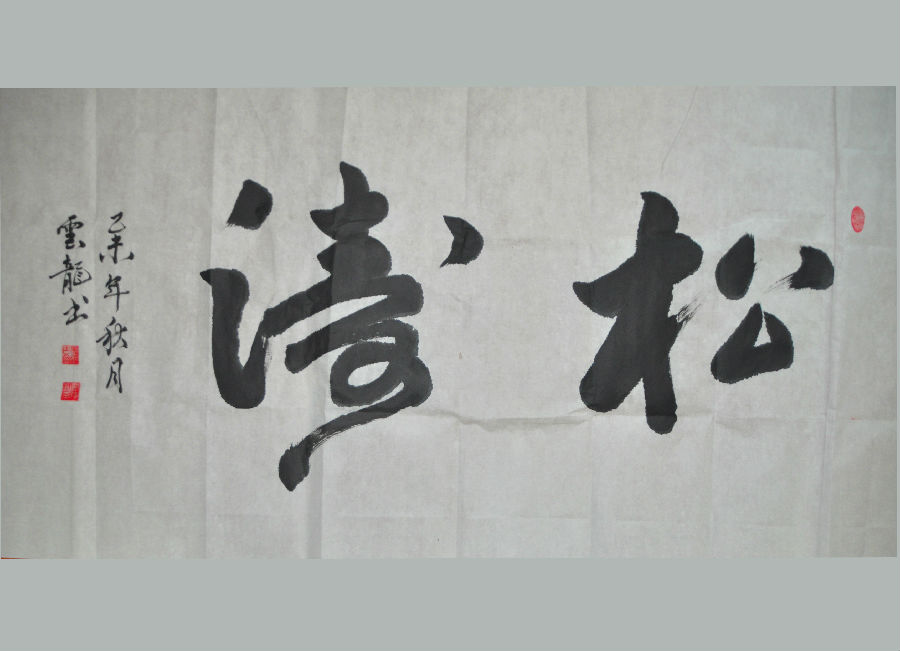 松濤
乙未年秋月
雲龍书